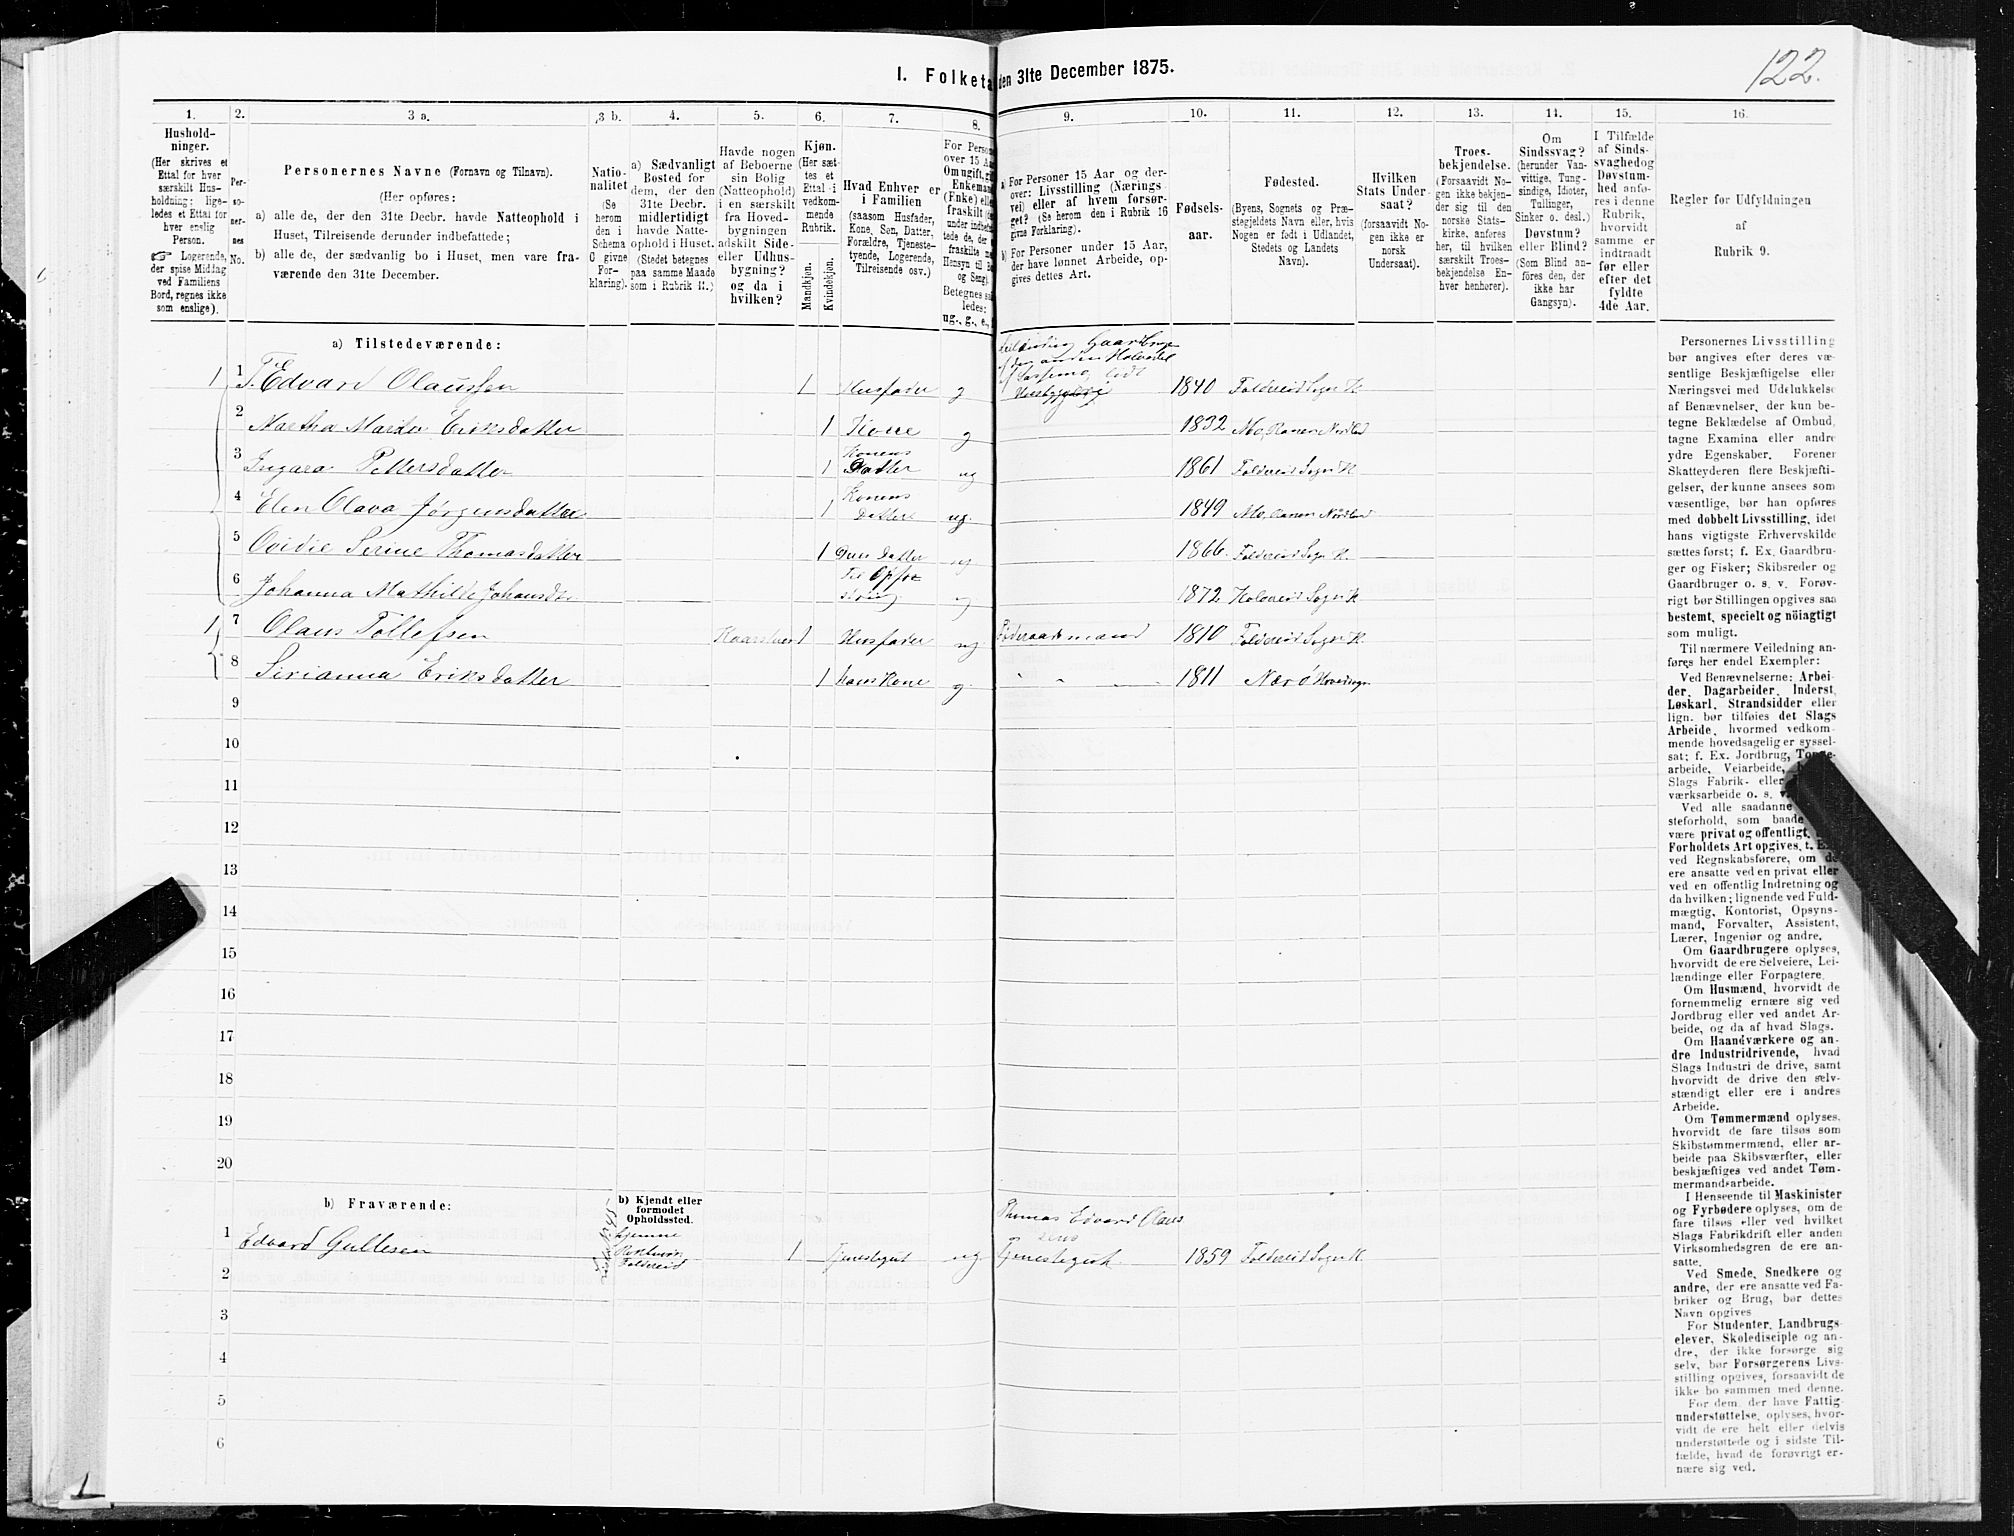 122.
I. Folketa
den 31te December 1875.
1. 2. 3 a. 3 b. 4. 5. 6. 7. 8. 9. 10. 11. 12. 13. 14. 15. 16.
Hushold-
ninger.
(Her skrives et
Ettal for hver
særskilt Hus-
holdning; lige-
ledes et Ettal for
hver enslig
Person.
☞ Logerende,
der spise Middag
ved Familiens
Bord, regnes ikke
som enslige).
Per-
so-
ner-
nes
No.
Personernes Navne (Fornavn og Tilnavn).
(Her opføres:
a) alle de, der den 31te Decbr. havde Natteophold i
Huset, Tilreisende derunder indbefattede;
b) alle de, der sædvanlig bo i Huset, men vare fra-
værende den 31te December.
Natio-
nalitet
(Se
herom
den i
Schema
C givne
For-
klaring).
a) Sædvanligt
Bosted for
dem, der den
31te Decbr.
midlertidigt
havde Natte-
ophold i Huset.
(Stedet betegnes
paa samme Maade
som i Rubrik 11.)
Havde nogen
af Beboerne
sin Bolig
(Natteophold)
i en særskilt
fra Hoved-
bygningen
adskilt Side-
eller Udhus-
bygning?
og da i
hvilken?
Kjøn.
(Her sæt-
tes et
Ettal i
vedkom-
mende
Rubrik.
Mandkjøn.
Kvindekjøn.
Hvad Enhver er
i Familien
(saasom Husfader,
Kone, Søn, Datter,
Forældre, Tjeneste-
tyende, Logerende,
Tilreisende osv.)
For Persone
over 15 Aa
Om ugift, gi
Enkemand
(Enke) elle
fraskilt
under indbefat
tede de, der
fraskilte
Hensyn til B
og Seng)
Betegnes saa
ledes:
ug., g., e.,
a) For Personer 15 Aar og der-
over: Livsstilling (Nærings-
vei) eller af hvem forsør-
get? (Se herom den i Rubrik 16
givne Forklaring).
b) For Personer under 15 Aar,
der have lønnet Arbeide, op-
gives dettes Art.
Fødsels-
aar.
Fødested.
(Byens, Sognets og Præ-
stegjeldets Navn eller, hvis
Nogen er født i Udlandet,
Stedets og Landets
Navn).
Hvilken
Stats Under-
saat?
(forsaavidt No-
gen ikke er
norsk
Undersaat).
Troes-
bekjendelse.
(Forsaavidt No-
gen ikke bekjen-
der sig til den
norske Stats-
kirke, anføres
her, til hvilken
særskilt Troes-
bekjendelse En-
hver henhører).
Om
Sindssvag?
(herunder Van-
vittige, Tung-
sindige, Idioter,
Tullinger,
Sinker o. desl.)
Døvstum?
eller Blind?
(Som Blind an-
føres den, der
ikke har
Gangsyn).
I Tilfælde
af Sinds-
svaghed og
Døvstum-
hed anfø-
res i denne
Rubrik,
hvorvidt
samme er
indtraadt
før eller
efter det
fyldte
4de Aar.
Regler for Udfyldningen
af
Rubrik 9.
a) Tilstedeværende:
Gaardbruger
den anden Halvdel
1 1 T. Edvard Olaussen 1 Husfader g 1840 Foldereid Sogn K
2 Martha Marda Eriksdatter 1 Kone g 1832 Mo, Ranen Nordland
3 Ingara Pettersdatter 1 Konens Datter ug 1861 Foldereid Sogn K.
4 Elen Olava Jørgensdatter 1 Konens Datter ug. 1849 Mo, Ranen Nordland
5 Ovidie Serine Thomasdatter 1 Datter ug 1866. Foldereid Sogn K.
6 Johanna Mathilde Johansdr Til Opfostring 1872. Sogn K
1 7 Olaus Tollefsen 1 Husfader Føderaadsmand 1810 Foldereid Sogn K.
8 Sirianna Eriksdatter 1 hans Kone g. " " " 1811 Nærø Hovedsogn
9
10
11
12
13
14
15
16
17
18
19
20
b) Fraværende:
b) Kjendt eller
formodet
Opholdssted.
Thomas Edvard Olaus
sens
1 Edvard Gullesen Foldereid 1 Tjenestegut ug Tjenestegut 1859 Foldereid Sogn K.
2
3
4
5
6
Personernes Livsstilling
bør angives efter deres væ-
sentlige Beskjæftigelse eller
Næringsvei med Udelukkelse
af Benævnelser, der kun be-
tegne Beklædelse af Ombud,
tagne Examina eller andre
ydre Egenskaber. Forener
Skatteyderen flere Beskjæfti-
gelser, der kunne ansees som
væsentlige, bør han opføres
med dobbelt Livsstilling, idet
hans vigtigste Erhvervskilde
sættes først; f. Ex. Gaardbru-
ger og Fisker; Skibsreder og
Gaardbruger o. s. v. Forøv-
rigt bør Stillingen opgives saa
bestemt, specielt og nöiagtigt
som muligt.
Til nærmere Veiledning an-
føres her endel Exempler:
Ved Benævnelserne: Arbei-
der, Dagarbeider, Inderst,
Løskarl, Strandsidder eller
lign. bør tilføies det Slags
Arbeide, hvormed vedkom-
mende hovedsagelig er syssel-
sat; f. Ex. Jordbrug, Tomte-
arbeide, Veiarbeide,
Slags Fabrik- eller
værksarbeide o. s. v.
Ved alle saadanne
steforhold, som baade
være privat og offentligt,
Forholdets Art opgives, t. Ex.
ved Regnskabsførere, om de
ere ansatte ved en privat eller
ved en offentlig Indretning og
da hvilken; lignende ved Fuld-
mægtig, Kontorist, Opsyns-
mand, Forvalter, Assistent,
Lærer, Ingeniør og andre.
Om Gaardbrugere oplyses,
hvorvidt de ere Selveiere, Lei-
lændinge eller Forpagtere.
Om Husmænd, hvorvidt de
fornemmelig ernære sig ved
Jordbrug eller ved andet Ar-
beide, og da af hvad Slags.
Om Haandværkere og an-
dre Industridrivende, hvad
Slags Industri de drive, samt
hvorvidt de drive den selv-
stændigt eller ere i andres
Arbeide.
Om Tømmermænd oplyses,
hvorvidt de fare tilsøs som
Skibstømmermænd, eller ar-
beide paa Skibsværfter, eller
beskjæftiges ved andet Tøm-
mermandsarbeide.
I Henseende til Maskinister
og Fyrbødere oplyses, om de
fare tilsøs eller ved hvilket
Slags Fabrikdrift eller anden
Virksomhedsgren de ere an-
satte.
Ved Smede, Snedkere og
andre, der ere ansatte ved Fa-
briker og Brug, bør dettes
Navn opgives
For Studenter, Landbrugs-
elever, Skoledisciple og an-
dre, der ikke forsørge sig
selv, bør Forsørgerens Livs-
stilling opgives, forsaavidt de
ikke bo sammen med denne.
For dem, der have Fattig-
understøttelse, oplyses, hvor-
vidt de ere helt eller delvis
understøttede og i sidste Til-
fælde, hvad de forøvrigt er-
nære sig ved.